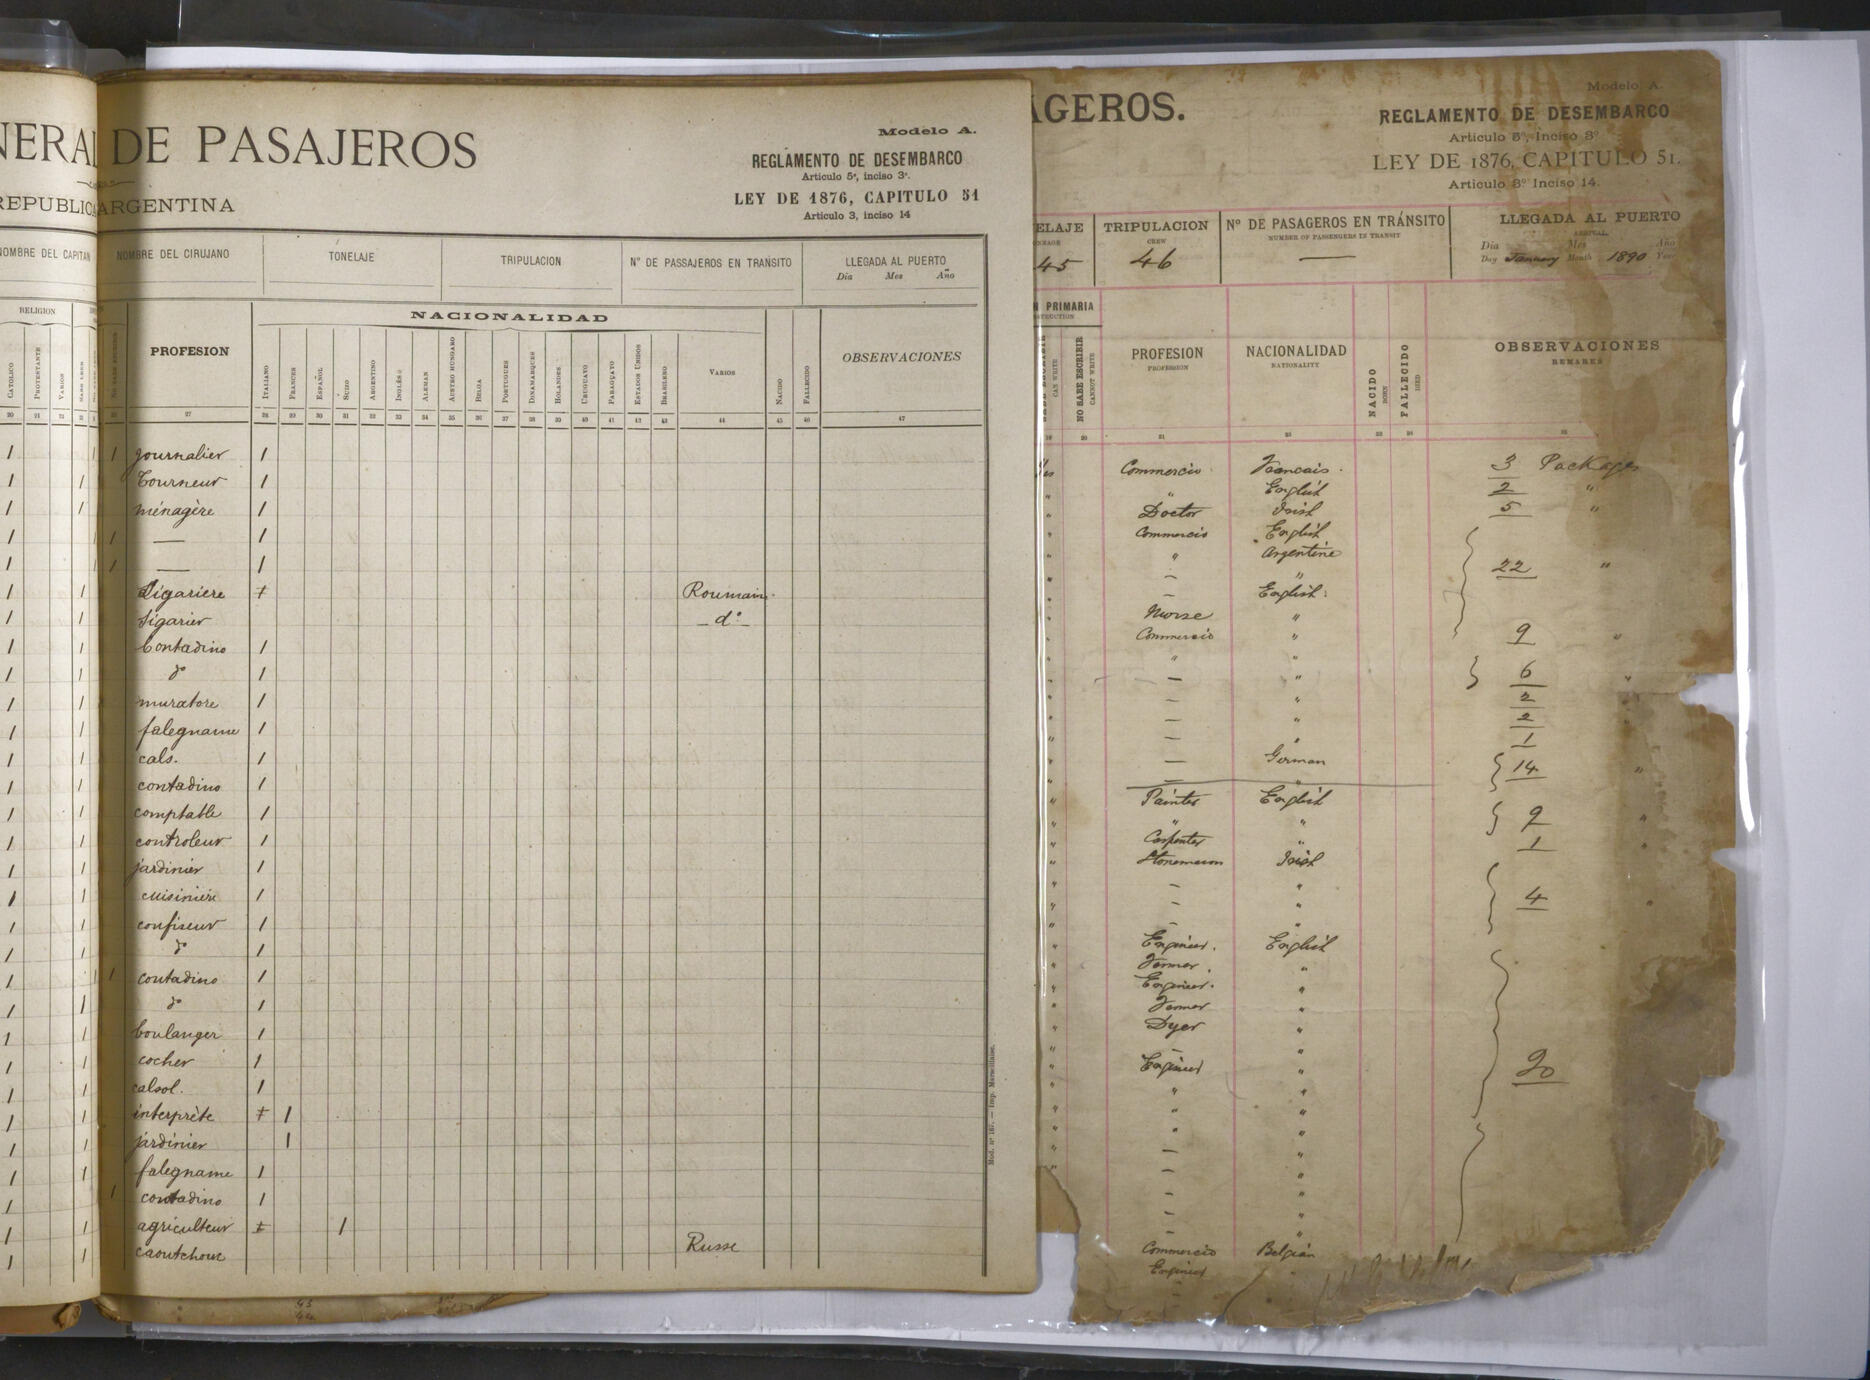 NERAL DE PASAJEROS
REPUBLICA ARGENTINA
Modelo A.
REGLAMENTO DE DESEMBARCO
Articulo 5º, inciso 3º.
LEY DE 1876, CAPITULO 51
Articulo 3, inciso 14
NOMBRE DEL CAPITAN
NOMBRE DEL CIRUJANO
TONELAJE
TRIPULACION
Nº DE PASSAJEROS EN TRÁNSITO
LLEGADA AL PUERTO
Dia Mes Año
RELIGION
CATOLICO
PROTESTANTE
VARIOS
PROFESION
NACIONALIDAD
ITALIANO
FRANCES
ESPAÑOL
SUIZO
ARGENTINO
INGLÉS
ALEMAN
AUSTRO HUNGARO
BELGA
PORTUGUES
DINAMARQUES
HOLANDES
URUGUAYO
PARAGUAYO
ESTADOS UNIDOS
BRASILERO
VARIOS
NACIDO
FALLECIDO
OBSERVACIONES
20 21 22 27 28 29 30 31 32 33 34 35 36 37 38 39 40 41 42 43 44 45 46 47
1 1 1 journalier 1
1 1 Tourneur 1
1 1 ménagère 1
1 1 — 1
1 1 — 1
1 1 Sigariere Roumain
1 1 Sigarier — dº —
1 1 Contadino 1
1 1 dº 1
1 1 muratore 1
1 1 falegname 1
1 1 cals. 1
1 1 contadino 1
1 1 comptable 1
1 1 controleur 1
1 1 jardinier 1
1 1 cuisinière 1
1 1 confiseur 1
1 1 dº 1
1 1 contadino 1
1 1 dº 1
1 1 boulanger 1
1 1 cocher 1
1 1 calsol. 1
1 1 interprète 1
1 1 jardinier 1
1 1 falegname 1
1 1 contadino 1
1 1 agriculteur 1
1 1 caoutchouc Russe
Mod. nº 167. — Imp. Marseillaise.
AGEROS.
Modelo A.
REGLAMENTO DE DESEMBARCO
Articulo 5º, Inciso 3º
LEY DE 1876, CAPITULO 51.
Articulo 3º Inciso 14.
ELAJE
45
TRIPULACION
CREW
46
Nº DE PASAGEROS EN TRÁNSITO
NUMBER OF PASSENGERS IN TRANSIT
—
LLEGADA AL PUERTO
ARRIVAL
Dia Mes Año
Day January Month 1890 Year
N PRIMARIA
CAN WRITE
NO SABE ESCRIBIR
CANNOT WRITE
PROFESION
PROFESSION
NACIONALIDAD
NATIONALITY
NACIDO
BORN
FALLECIDO
DIED
OBSERVACIONES
REMARKS
Commercio Francais. 3 Packages
" English 2 "
Doctor Irish 5 "
Commercio English
" Argentine
— " 22 "
— English
Nurse "
Commercio " 9 "
" "
— " 6 "
— " 2
— " 2
— " 1
— German 14 "
— "
Painter English
" " 9 "
Carpenter " 1 "
Stonemason Irish
— "
— " 4 "
— "
Engineer. English
Farmer. "
Engineer. "
Farmer "
Dyer "
— "
Engineer " 20
" "
" "
" "
— "
— "
— "
— "
— "
Commercio Belgian
Engineer